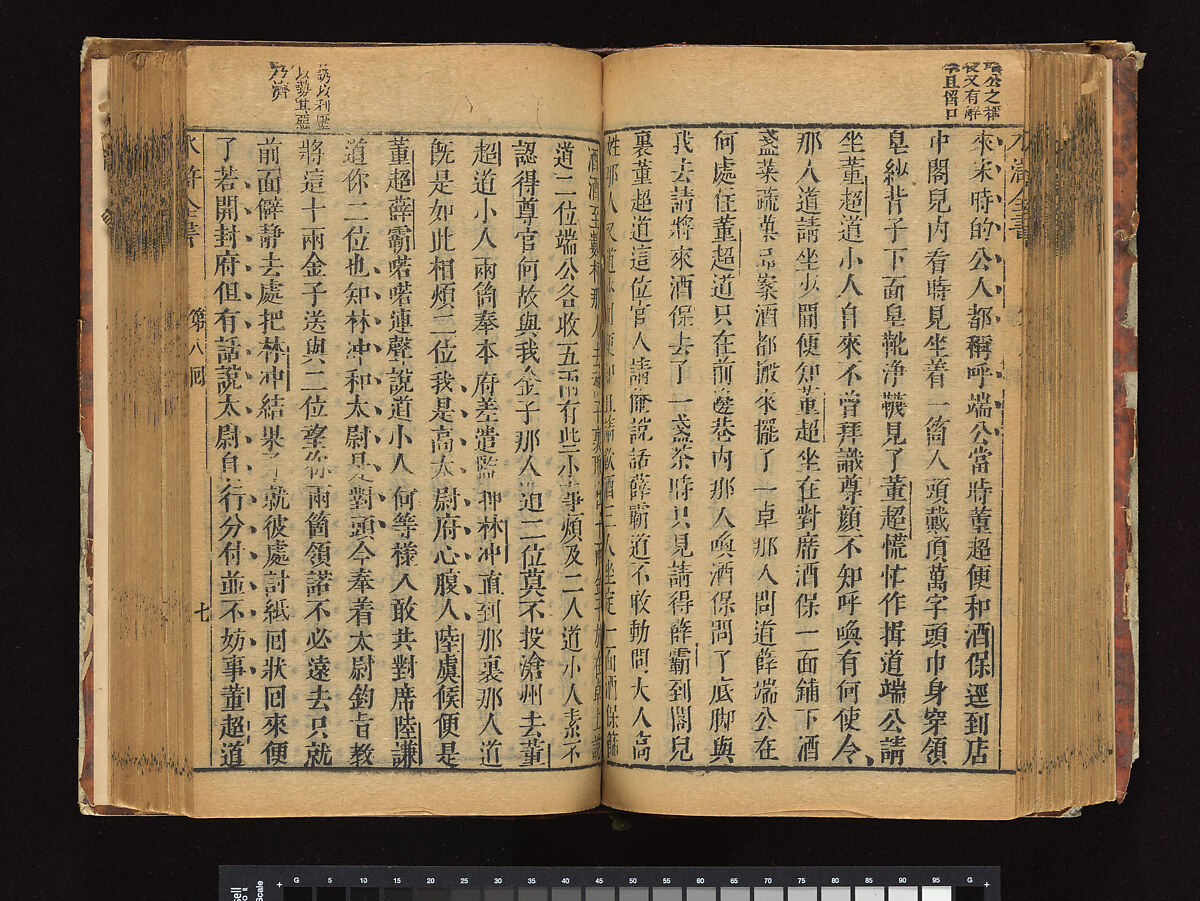 公之稱
又有解
且留口
來宋時的公人都稱呼端公當時董超便和酒保逕到店
中閣兒內看時見坐着一箇人頭戴頂萬字頭巾身穿領
皂紗背子下面皂靴淨襪見了董超慌忙作揖道端公請
坐董超道小人自來不曾拜識尊顏不知呼喚有何使令
那人道請坐少間便知董超坐在對席酒保一面鋪下酒
盞菜蔬菓品案酒都搬來擺了一卓那人問道薛端公在
何處住董超道只在前邊巷內那人喚酒保問了底脚與
我去請將來酒保去了一盞茶時只見請得薛霸到閣兒
裏董超道這位官人請俺說話薛霸道不敢動問大人高
姓那人又道 便知且請飲酒三人坐定一面酒保篩
酒酒至數杯那人去袖子裏取 十兩金子放在卓上說
道二位端公各收五兩有些小事煩及二人道小人素不
認得尊官何故與我金子那人道二位莫不投滄州去董
超道小人兩箇奉本府差遣監押林冲直到那裏那人道
旣是如此相煩二位我是高太尉府心腹人陸虞候便是
董超薛霸喏喏連聲說道小人何等樣人敢共對席陸謙
道你二位也知林冲和太尉是對頭今奉着太尉鈞旨教
將這十兩金子送與二位望你兩箇領諾不必遠去只就
前面僻静去處把林冲結果了就彼處討紙囘狀囘來便
了若開封府但有話說太尉自行分付並不妨事董超道
誘以利壓
以勢其惡
乃濟
水滸全書
第八囘
七